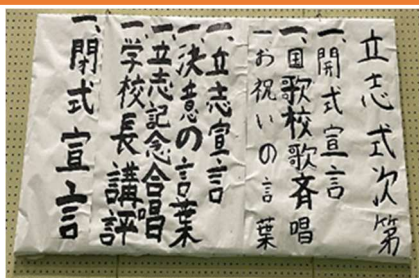 立志式次第
一、開式宣言
一、国歌校歌斉唱
一お祝いの言葉
一、立志宣言
一決意の言葉
一、立志記念合唱
一学校長講評
一、閉式宣言